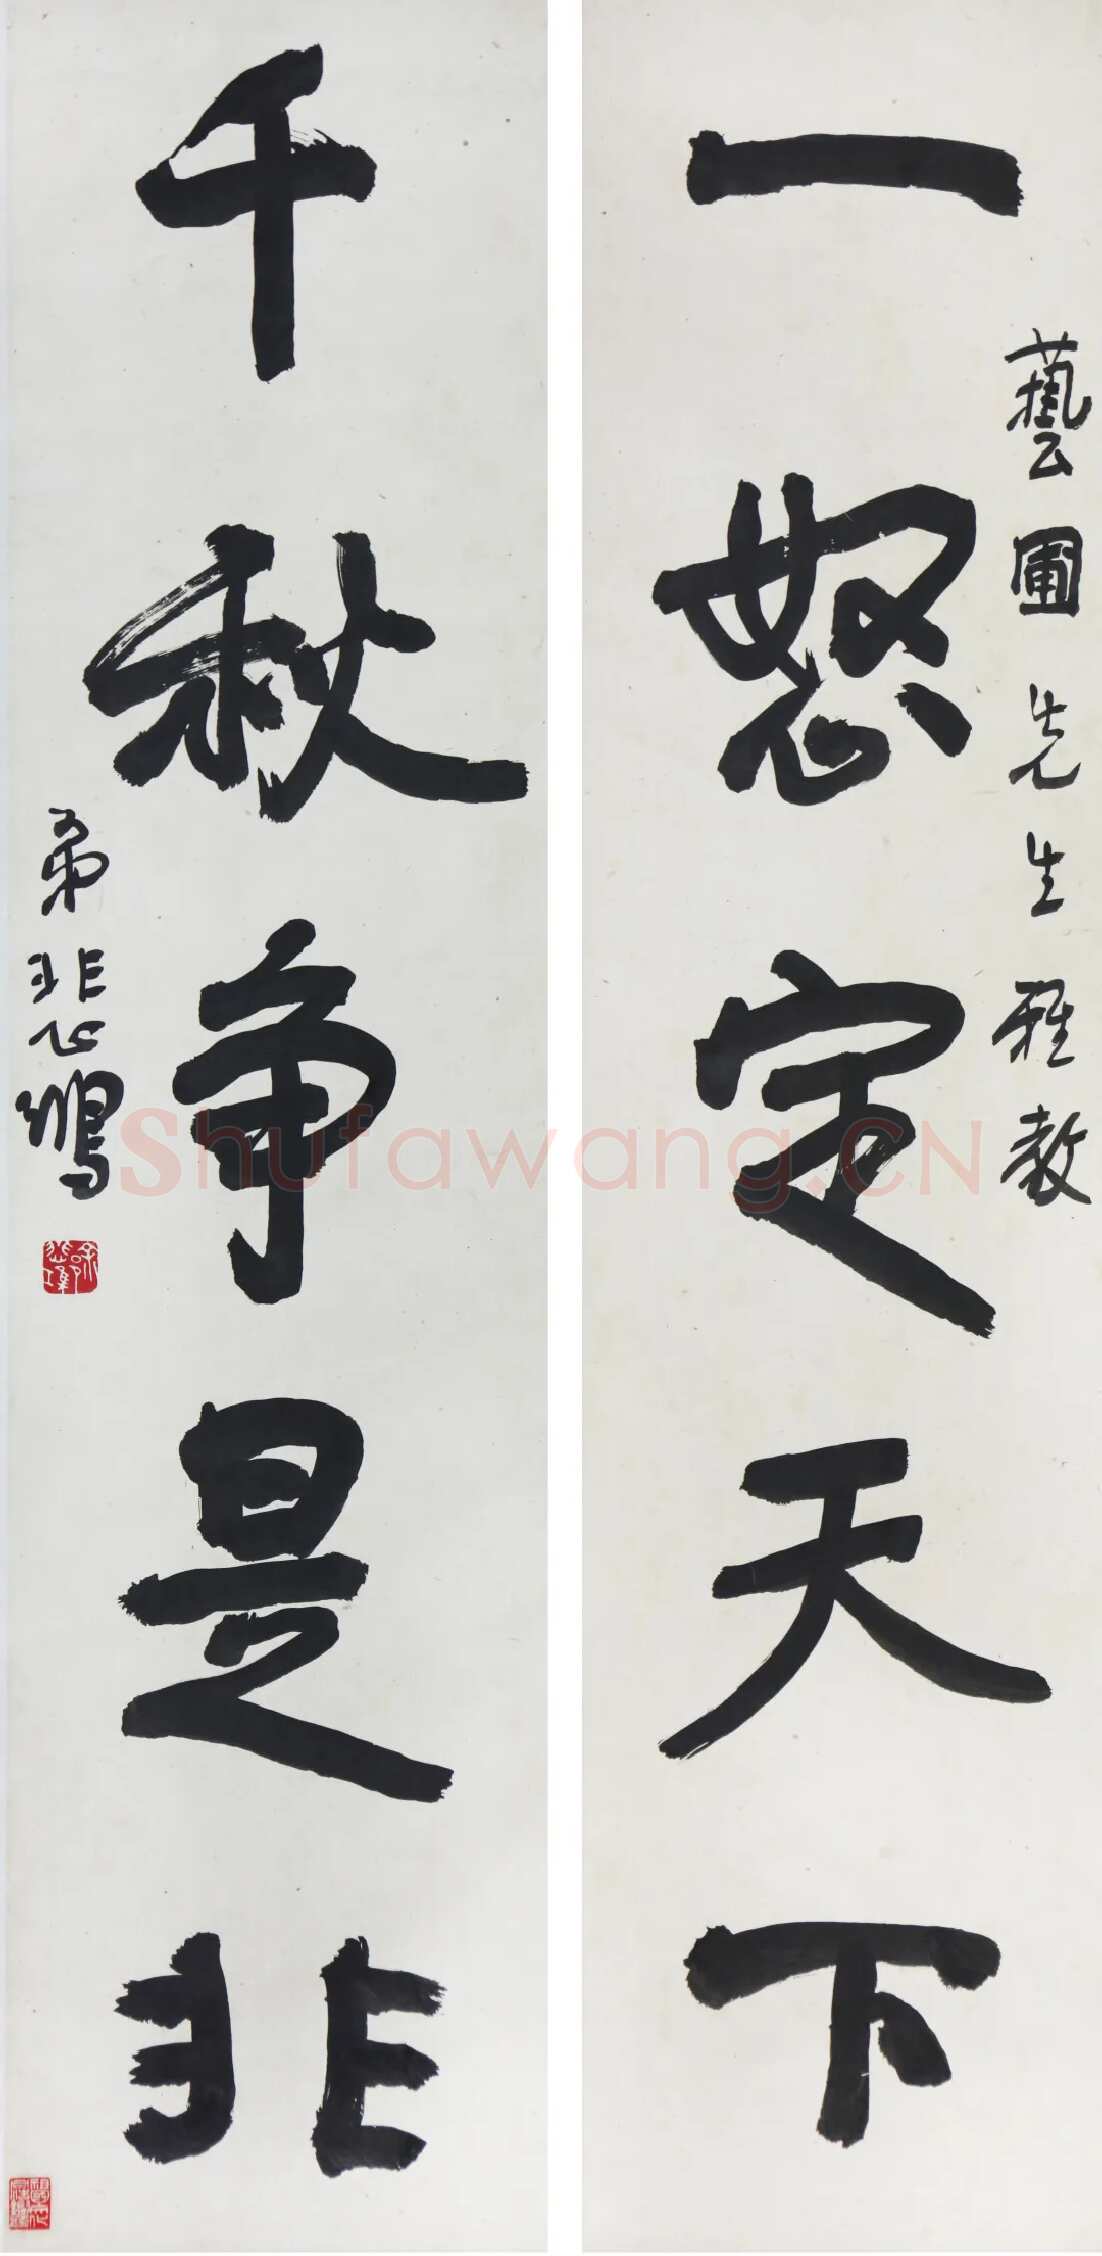 一怒定天下
藝圃先生雅教
千秋争是非
弟悲鴻
Shufawang.CN